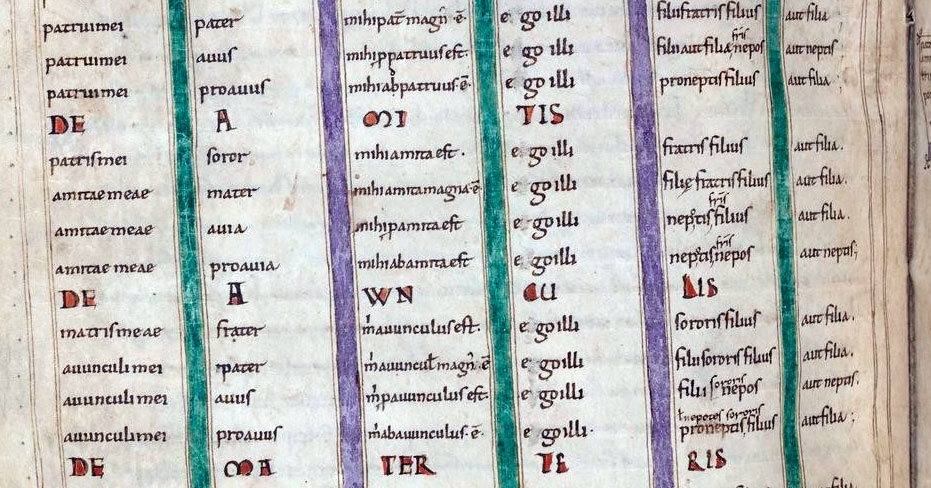 patruimei pater mihi pat̄ magn̄ ē ego illi filii fratris filius aut filia
patrui mei auus mihi ppatruus est. ego illi filii aut filia fr̄is nepos aut neptis
patrui mei proauus mihi abpatruus ē ego illi proneptis filius aut filia
DE A MI TIS
patris mei soror mihi amita est. ego illi fratris filius aut filia.
amitae meae mater mihi amita magna ē ego illi filię fratris filius aut filia.
amitae meae auia mihi pamita est ego illi neptis fr̄is filius aut filia.
amitae meae proauia mihi abamita est ego illi neptis fr̄is nepos aut neptis;
DE A WN CU LIS
matris meae frater m auunculus est. ego illi sororis filius aut filia.
auunculi mei pater m auuncul magn̄ ē ego illi filii sororis filius aut filia.
auunculi mei auus m pauunculus est ego illi filii sororis nepos aut neptis.
auunculi mei proauus m abauunculus ē. ego illi. ł nepotes sororis proneptis filius aut filia;
DE MA TER TE RIS